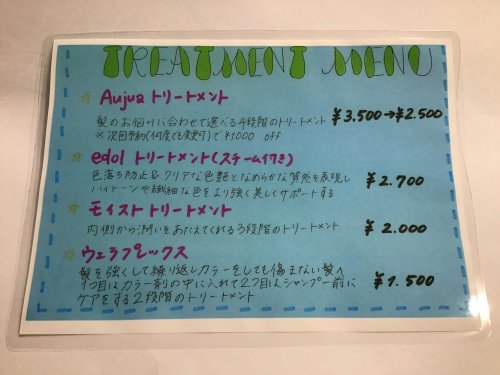 TREATMENT MENU
☆ Aujua トリートメント
髪のお悩みに合わせて選べる4段階のトリートメント ¥3.500→¥2.500
※次回予約(何度でも変更可)で¥1000 off
☆ edol トリートメント(スチーム付き)
色落ち防止&クリアな色艶となめらかな質感を表現し
ハイトーンや繊細な色をより強く美しくサポートする ¥2.700
☆ モイストトリートメント
内側から潤いをあたえてくれる3段階のトリートメント ¥2.000
☆ ウェラプレックス
髪を強くして繰り返しカラーをしても傷まない髪へ
1つ目はカラー剤の中に入れて2つ目はシャンプー前に ¥1.500
ケアをする2段階のトリートメント